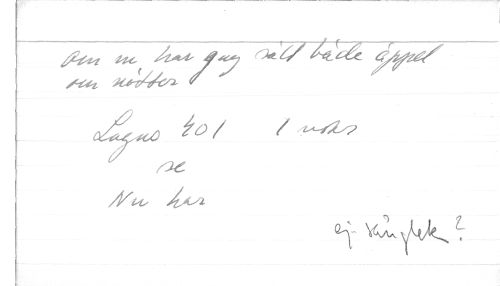 om nu har jag sått både äppel
om nötter
Lagus 401 1 vers
se
Nu har
ej sånglek?